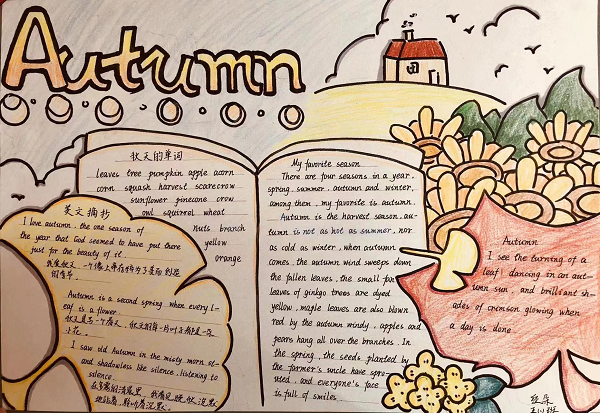 Autumn
秋天的单词
leaves tree pumpkin apple acorn
corn squash harvest scarecrow
sunflower pinecone crow
owl squirrel wheat
nuts branch
yellow
orange
英文摘抄
I love autumn, the one season of
the year that God seemed to have put there
just for the beauty of it.
我爱秋天,一个像上帝存粹为了美而创造
的季节.
Autumn is a second spring when every l-
eaf is a flower.
秋天是另一个春天,秋天的每一片叶子都是一朵
小花.
I saw old Autumn in the misty morn st-
and shadowless like silence, listening to
silence.
在多雾的清晨里,我看见晚秋沉默
地站着,聆听着沉默.
My favorite season
There are four seasons in a year,
spring, summer, autumn and winter,
among them, my favorite is autumn.
Autumn is the harvest season, au-
tumn is not as hot as summer, nor
as cold as winter, when autumn
comes, the autumn wind sweeps down
the fallen leaves, the small fan
leaves of ginkgo trees are dyed
yellow, maple leaves are also blown
red by the autumn windy, apples and
pears hang all over the branches. In
the spring, the seeds planted by
the farmer's uncle have spro-
uted, and everyone's face
is full of smiles.
Autumn
I see the turning of a
leaf dancing in an aut-
umn sun, and brilliant sh-
ades of crimson glowing when
a day is done.